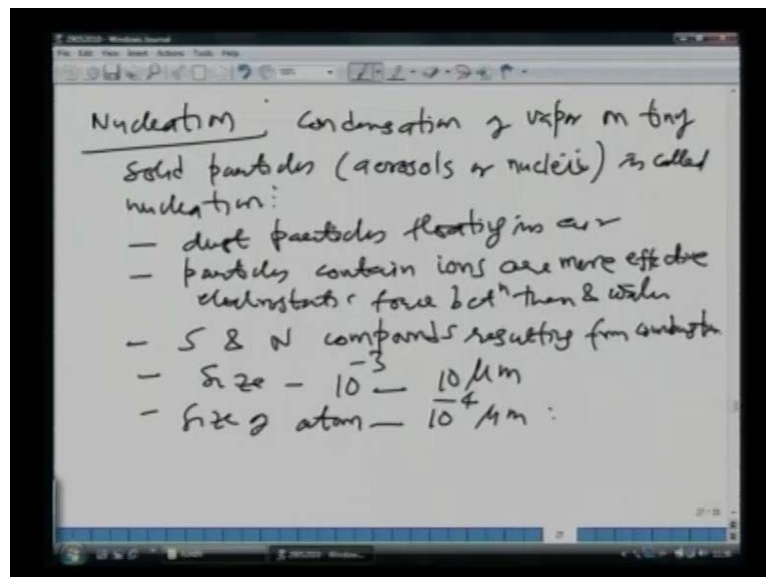 Nucleation : Condensation of vapor on tiny
solid particles (aerosols or nucleis) is called
nucleation :
— dust particles floating in air
— particles contain ions are more effective
electrostatic force betn them & water
— S & N compounds resulting from combustion
— Size — 10-3 — 10 μm
— Size of atom — 10-4 μm :